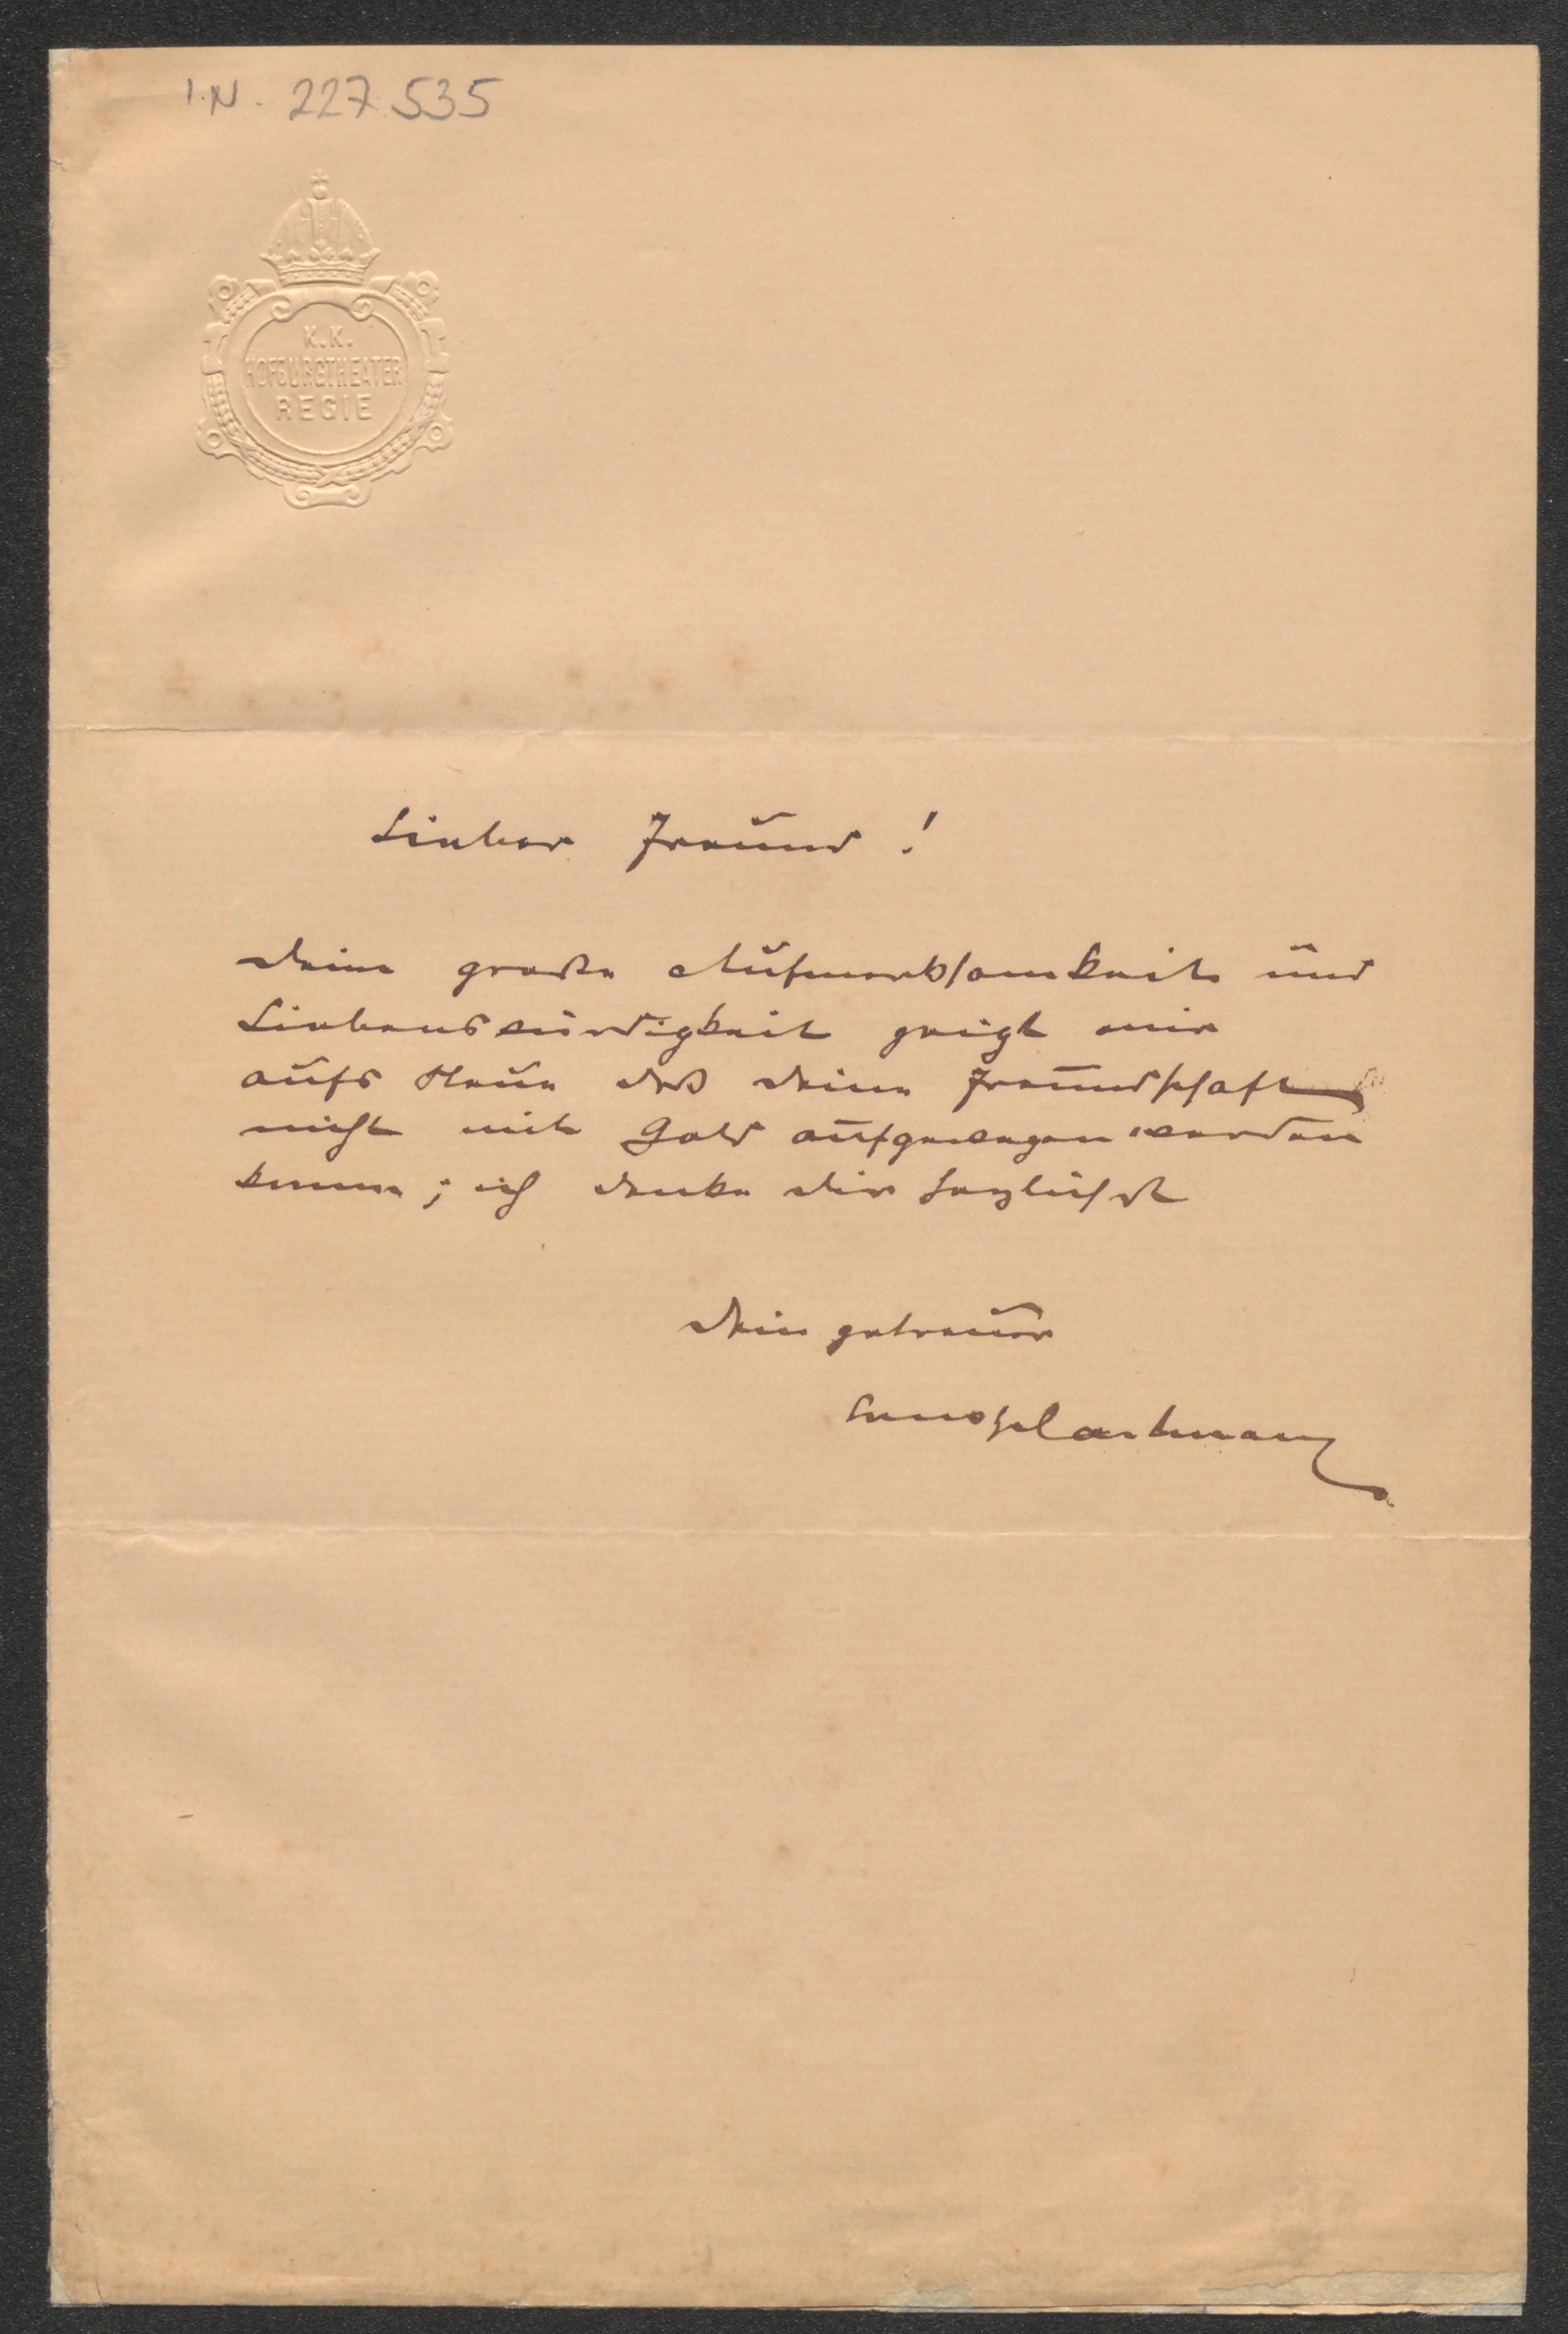 I.N. 227.535
K.K.
HOFBURGTHEATER
REGIE
Lieber Freund!
Deine große Aufmerksamkeit und
Liebenswürdigkeit zeigt mir
aufs Neue daß deine Freundschaft
nicht mit Gold aufgewogen werden
kann; ich danke dir herzlichst
Dein getreuer
Ernst Hartmann